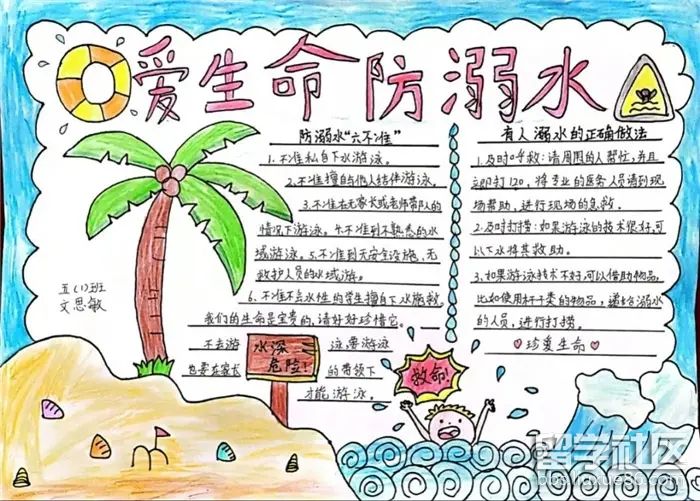 爱生命 防溺水
防溺水“六不准”
1.不准私自下水游泳。
2.不准擅自与他人结伴游泳。
3.不准在无家长或老师带队的
情况下游泳。4.不准到不熟悉的水
域游泳。5.不准到无安全设施、无
救护人员的水域游。
6.不准不会水性的学生擅自下水施救。
我们的生命是宝贵的,请好好珍惜它。
不去游
泳,要游泳
也要在家长
的带领下
才能游泳。
水深
危险!
五(1)班
文思敏
有人溺水的正确做法
1.及时呼救:请周围的人帮忙,并且
立即打120,将专业的医务人员请到现
场帮助,进行现场的急救。
2.及时打捞:如果游泳的技术很好,可
以下水将其救助。
3.如果游泳技术不好,可以借助物品,
比如使用杆子类的物品,递给溺水
的人员,进行打捞。
♡珍爱生命♡
救命!
留学社区